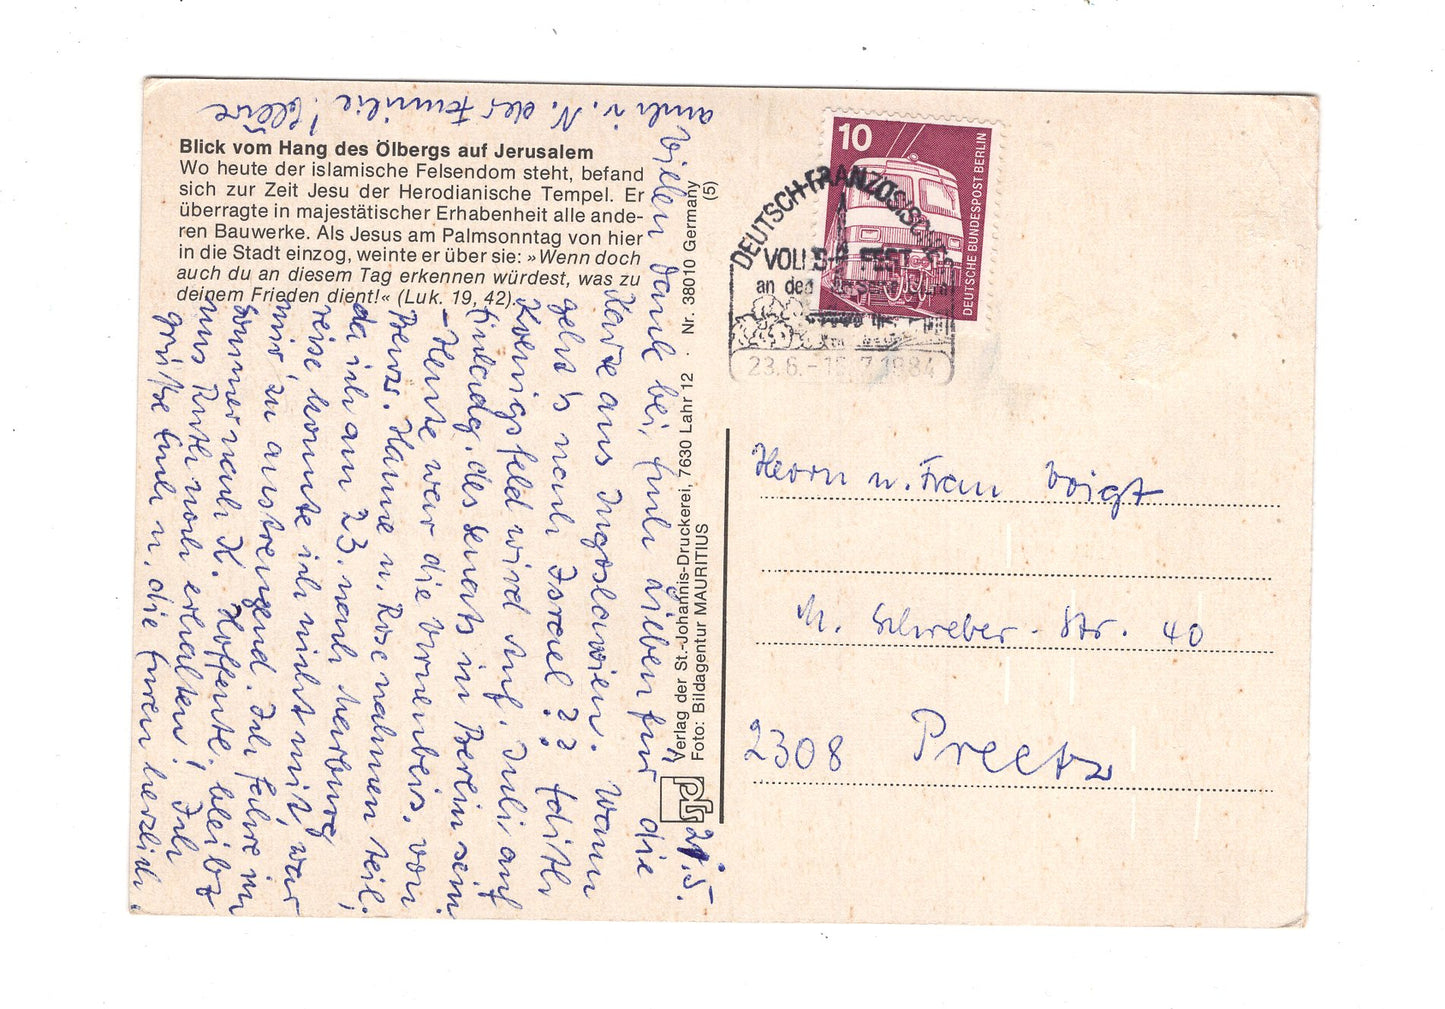 Blick vom Hang des Ölbergs auf Jerusalem
Wo heute der islamische Felsendom steht, befand
sich zur Zeit Jesu der Herodianische Tempel. Er
überragte in majestätischer Erhabenheit alle ande-
ren Bauwerke. Als Jesus am Palmsonntag von hier
in die Stadt einzog, weinte er über sie: »Wenn doch
auch du an diesem Tag erkennen würdest, was zu
deinem Frieden dient!« (Luk. 19, 42).
21.5.
Vielen Dank bei Euch Lieben für die
Karte aus Jugoslawien. Wann
geht's nach Israel?? Edith
Königsfeld wird Anf. Juli auf
Einladg. des Senats in Berlin sein
- Heute war die von
Hanne u. Rose nahmen teil,
da ich am 23. nach Harburg
reise konnte ich nicht mit, war
mir zu anstrengend. Ich fahre im
Sommer nach K. Hoffentl. bleibt
uns Ruth noch erhalten! Ich
grüße Euch u. die Euren herzlich
auch i. N. der Familie!
Verlag der St.-Johannis-Druckerei, 7630 Lahr 12 · Nr. 38010 Germany
Foto: Bildagentur MAURITIUS
(5)
sjd
10
DEUTSCHE BUNDESPOST BERLIN
DEUTSCH-FRANZÖSISCHES
VOLKS- FEST
an der
23.6.-15.7.1984
Herrn u. Frau Voigt
M. Schreber-Str. 40
2308 Preetz